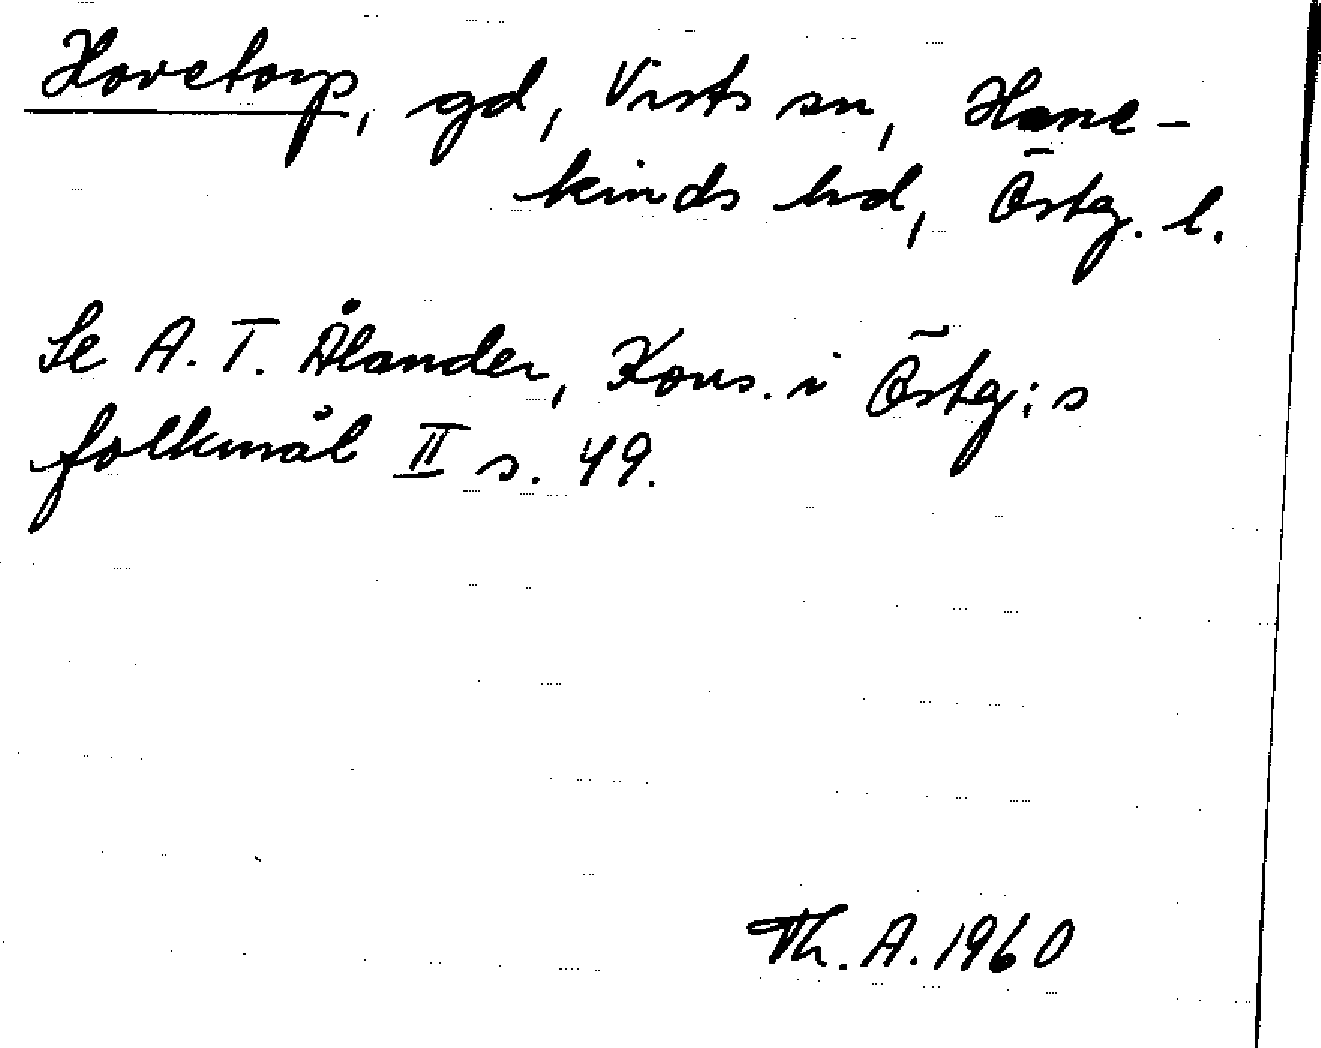 Hovetorp, gd, Vists sn, Hane-
kinds hd, Östg. l.
Se A. T. Ålander, Kons. i Östg:s
folkmål II s. 49.
Th. A. 1960